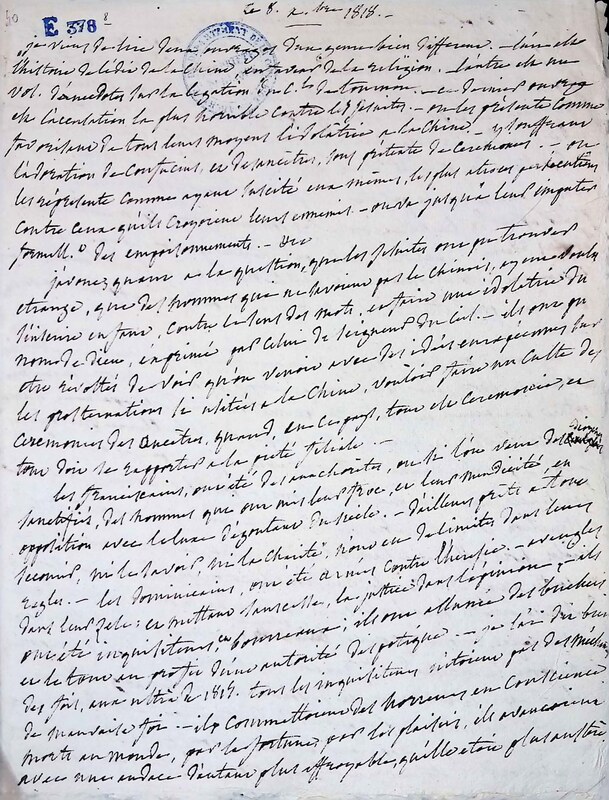 50
E 378 8
Le 8. x.bre 1818.
je viens de lire deux ouvrages d'un genre bien different. - l'un est
l'histoire de l'édit de la Chine, en faveur de la religion. - l'autre est un
vol. d'anecdotes sur la legation du C.al de tournon. - ce dernier ouvrage
est l'accusation la plus horrible contre les Jesuites. - on les présente comme
favorisant de tous leurs moyens l'idolatrie a la Chine. - y souffrant
l'adoration de Confucius, et des ancetres, sous prétexte de ceremonies. - on
les représente comme ayant suscité eux mêmes, les plus atroces persecutions
contre ceux qu'ils croyoient leurs ennemis. - on va jusqu'à leur imputer
formell.t des empoisonnements. -
j'avoue, quant a la question, que les Jesuites ont pu trouver
etrange, que des hommes qui ne savoient pas le chinois, ayent voulu
s'interner en faux, contre le sens des mots, et faire une idolatrie du
nom de Dieu, exprimé par celui de Seigneur du Ciel. - ils ont pu
etre revoltés de voir qu'on venoit avec des idées européennes sur
les prosternations si usitées a la Chine, vouloir faire un Culte des
ceremonies des ancetres, quand en ce pays, tout est ceremonie, et
tout doit se rapporter a la piété filiale. -
les franciscains, ont été des anachoretes, ou si l'on veut des
sanctifiés, des hommes qui ont mis leur froc, et leur mendicité, en
opposition avec le luxe dégoutant du siecle. - d'ailleurs prêts a tout
secourir, ni le savoir, ni la charité, n'ont eu de limites dans leurs
regles. - les dominicains, ont été armés contre l'hérésie. - aveugles
dans leur zele; et mettant sans cesse, la justice dans l'opinion; - ils
ont été inquisiteurs, et bourreaux; ils ont allumé des buchers
et le tout au profit d'une autorité despotique. - j'ai dit
des fois, aux notes de 1817. tous les inquisiteurs n'étoient pas des
de mauvaise foi. - ils commettoient des horreurs en Conscience
morts au monde, par la fortune, par les plaisirs, ils avançoient
avec une audace d'autant plus effroyable, qu'elle étoit plus austere